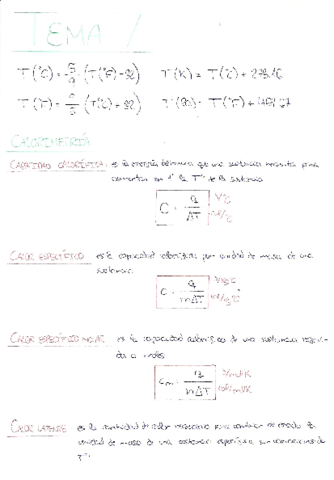 TEMA 1
T(ºC) = 5/9 · (T(ºF) - 32) T(K) = T(C) + 273.16
T(F) = 9/5 · (T(C) + 32) T(Ra) = T(ºF) + 459.67
CALORIMETRÍA
CAPACIDAD CALORÍFICA: es la energía que una sustancia necesita para
aumentar en 1º la Tª de la sustancia
C = q/ΔT
CALOR ESPECÍFICO: es la capacidad calorífica por unidad de masa de una
sustancia.
C = q/mΔT
CALOR ESPECÍFICO MOLAR: es la capacidad calorífica de una sustancia
a moles
Cm = q/nΔT
CALOR LATENTE: es la cantidad de calor necesario para cambiar de estado la
unidad de masa de una sustancia sin
Tª